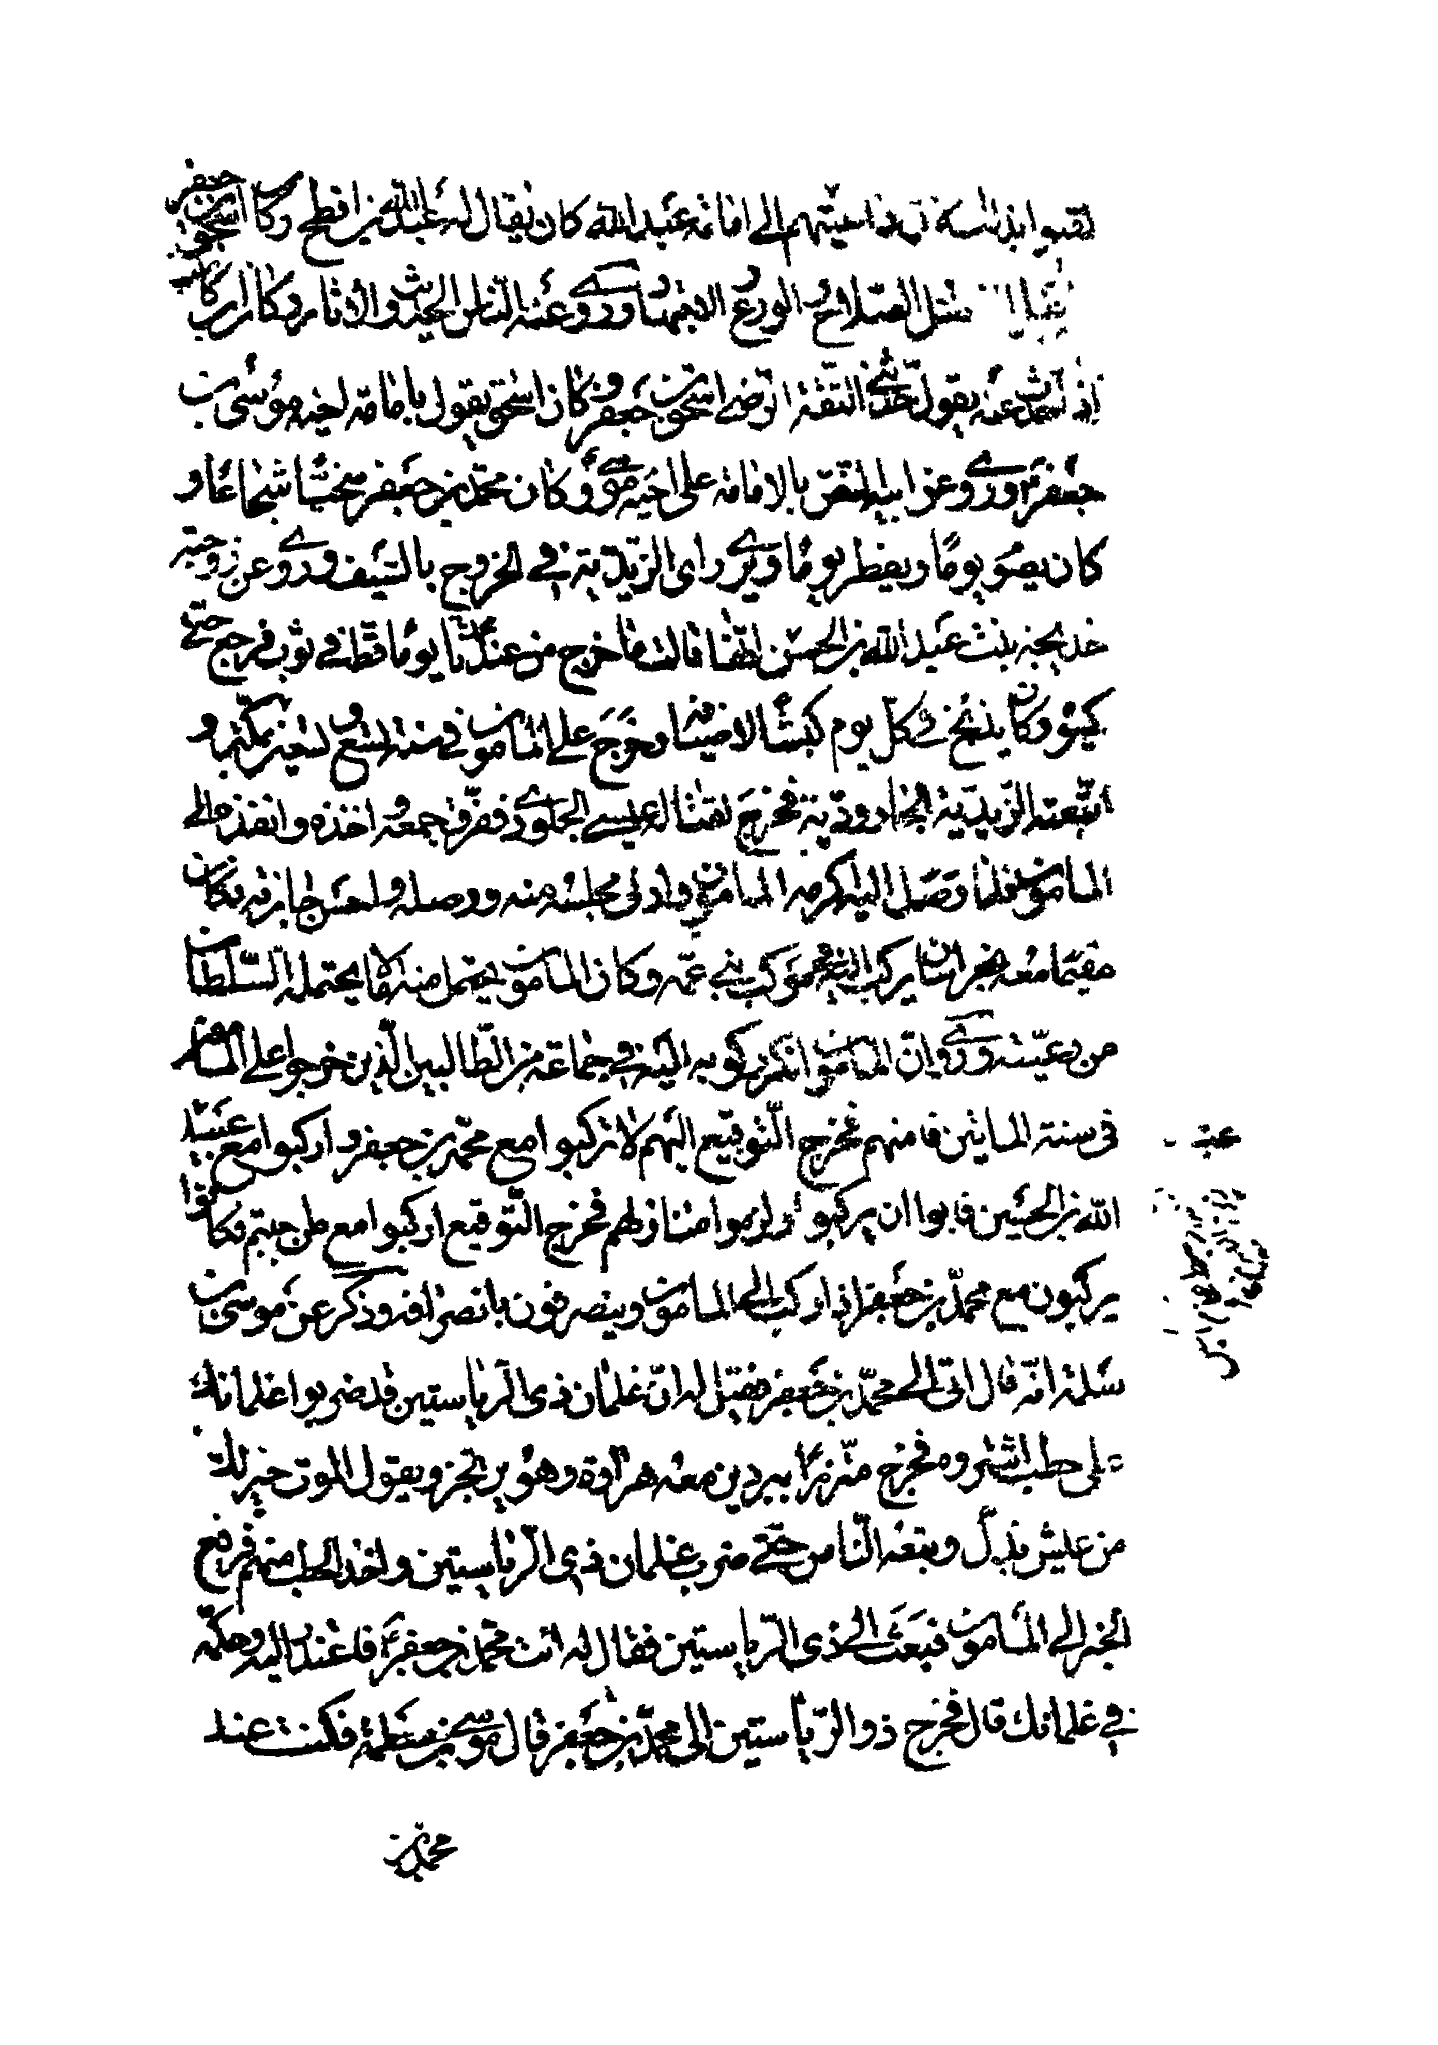 لقبوا بذلك لان داعيتهم الى امامة عبد الله كان يقال له عبد الله بن افطح وكان اسحق بن جعفر
من اهل الفضل الصلاح والورع والاجتهاد وروى عنه الناس الحديث والاثار وكان ابن كاسب
اذا حدث عنه يقول حدثني الثقة الرضي اسحق بن جعفر وكان اسحق يقول بامامة اخيه موسى بن
جعفر وروى عن ابيه النص بالامامة على اخيه موسى وكان محمد بن جعفر سخيا شجاعا و
كان يصوم يوما ويفطر يوما ويرى راى الزيدية في الخروج بالسيف وروى عن زوجته
خديجة بنت عبد الله بن الحسين انها قالت ما خرج من عندنا يوما قط في ثوب فرجع حتى
يكسوه وكان يذبح في كل يوم كبشا لاضيافه وخرج على المامون في سنة تسع وتسعين بمكة و
اتبعته الزيدية الجارودية فخرج لقتاله عيسى الجلودي ففرق جمعه واخذه وانفذه الى
المامون فلما وصل اليه اكرمه المامون وادنى مجلسه منه ووصله واحسن جايزته فكان
مقيما معه بخراسان يركب اليه في موكب بني عمه وكان المامون يحتمل منه ما لا يحتمله السلطان
من رعيته وروى ان المامون انكر ركوبه اليه في جماعة من الطالبين الذين خرجوا على المامون
في سنة الماتين فامنهم فخرج التوقيع اليهم لا تركبوا مع محمد بن جعفر واركبوا مع عبيد
عبيد
الله بن الحسين فابوا ان يركبوا ولزموا منازلهم فخرج التوقيع اركبوا مع من احببتم فكانوا
يركبون مع محمد بن جعفر اذا ركب الى المامون وينصرفون بانصرافه وذكر عن موسى بن
سلمة انه قال اتى الى محمد بن جعفر فقيل له ان غلمان ذى الرياستين قد ضربوا غلمانك
على حطب اشتروه فخرج متزرا ببردين معه هراوة وهو يرتجز ويقول الموت خير لك
من عيش بذل وتبعه الناس حتى ضرب غلمان ذى الرياستين واخذ الحطب منهم فرفع
الخبر الى المامون فبعث الى ذى الرياستين فقال له ائت محمد بن جعفر فاعتذر اليه وحكمه
في غلمانك قال فخرج ذو الرياستين الى محمد بن جعفر قال موسى بن سلمة فكنت عند
محمد بن